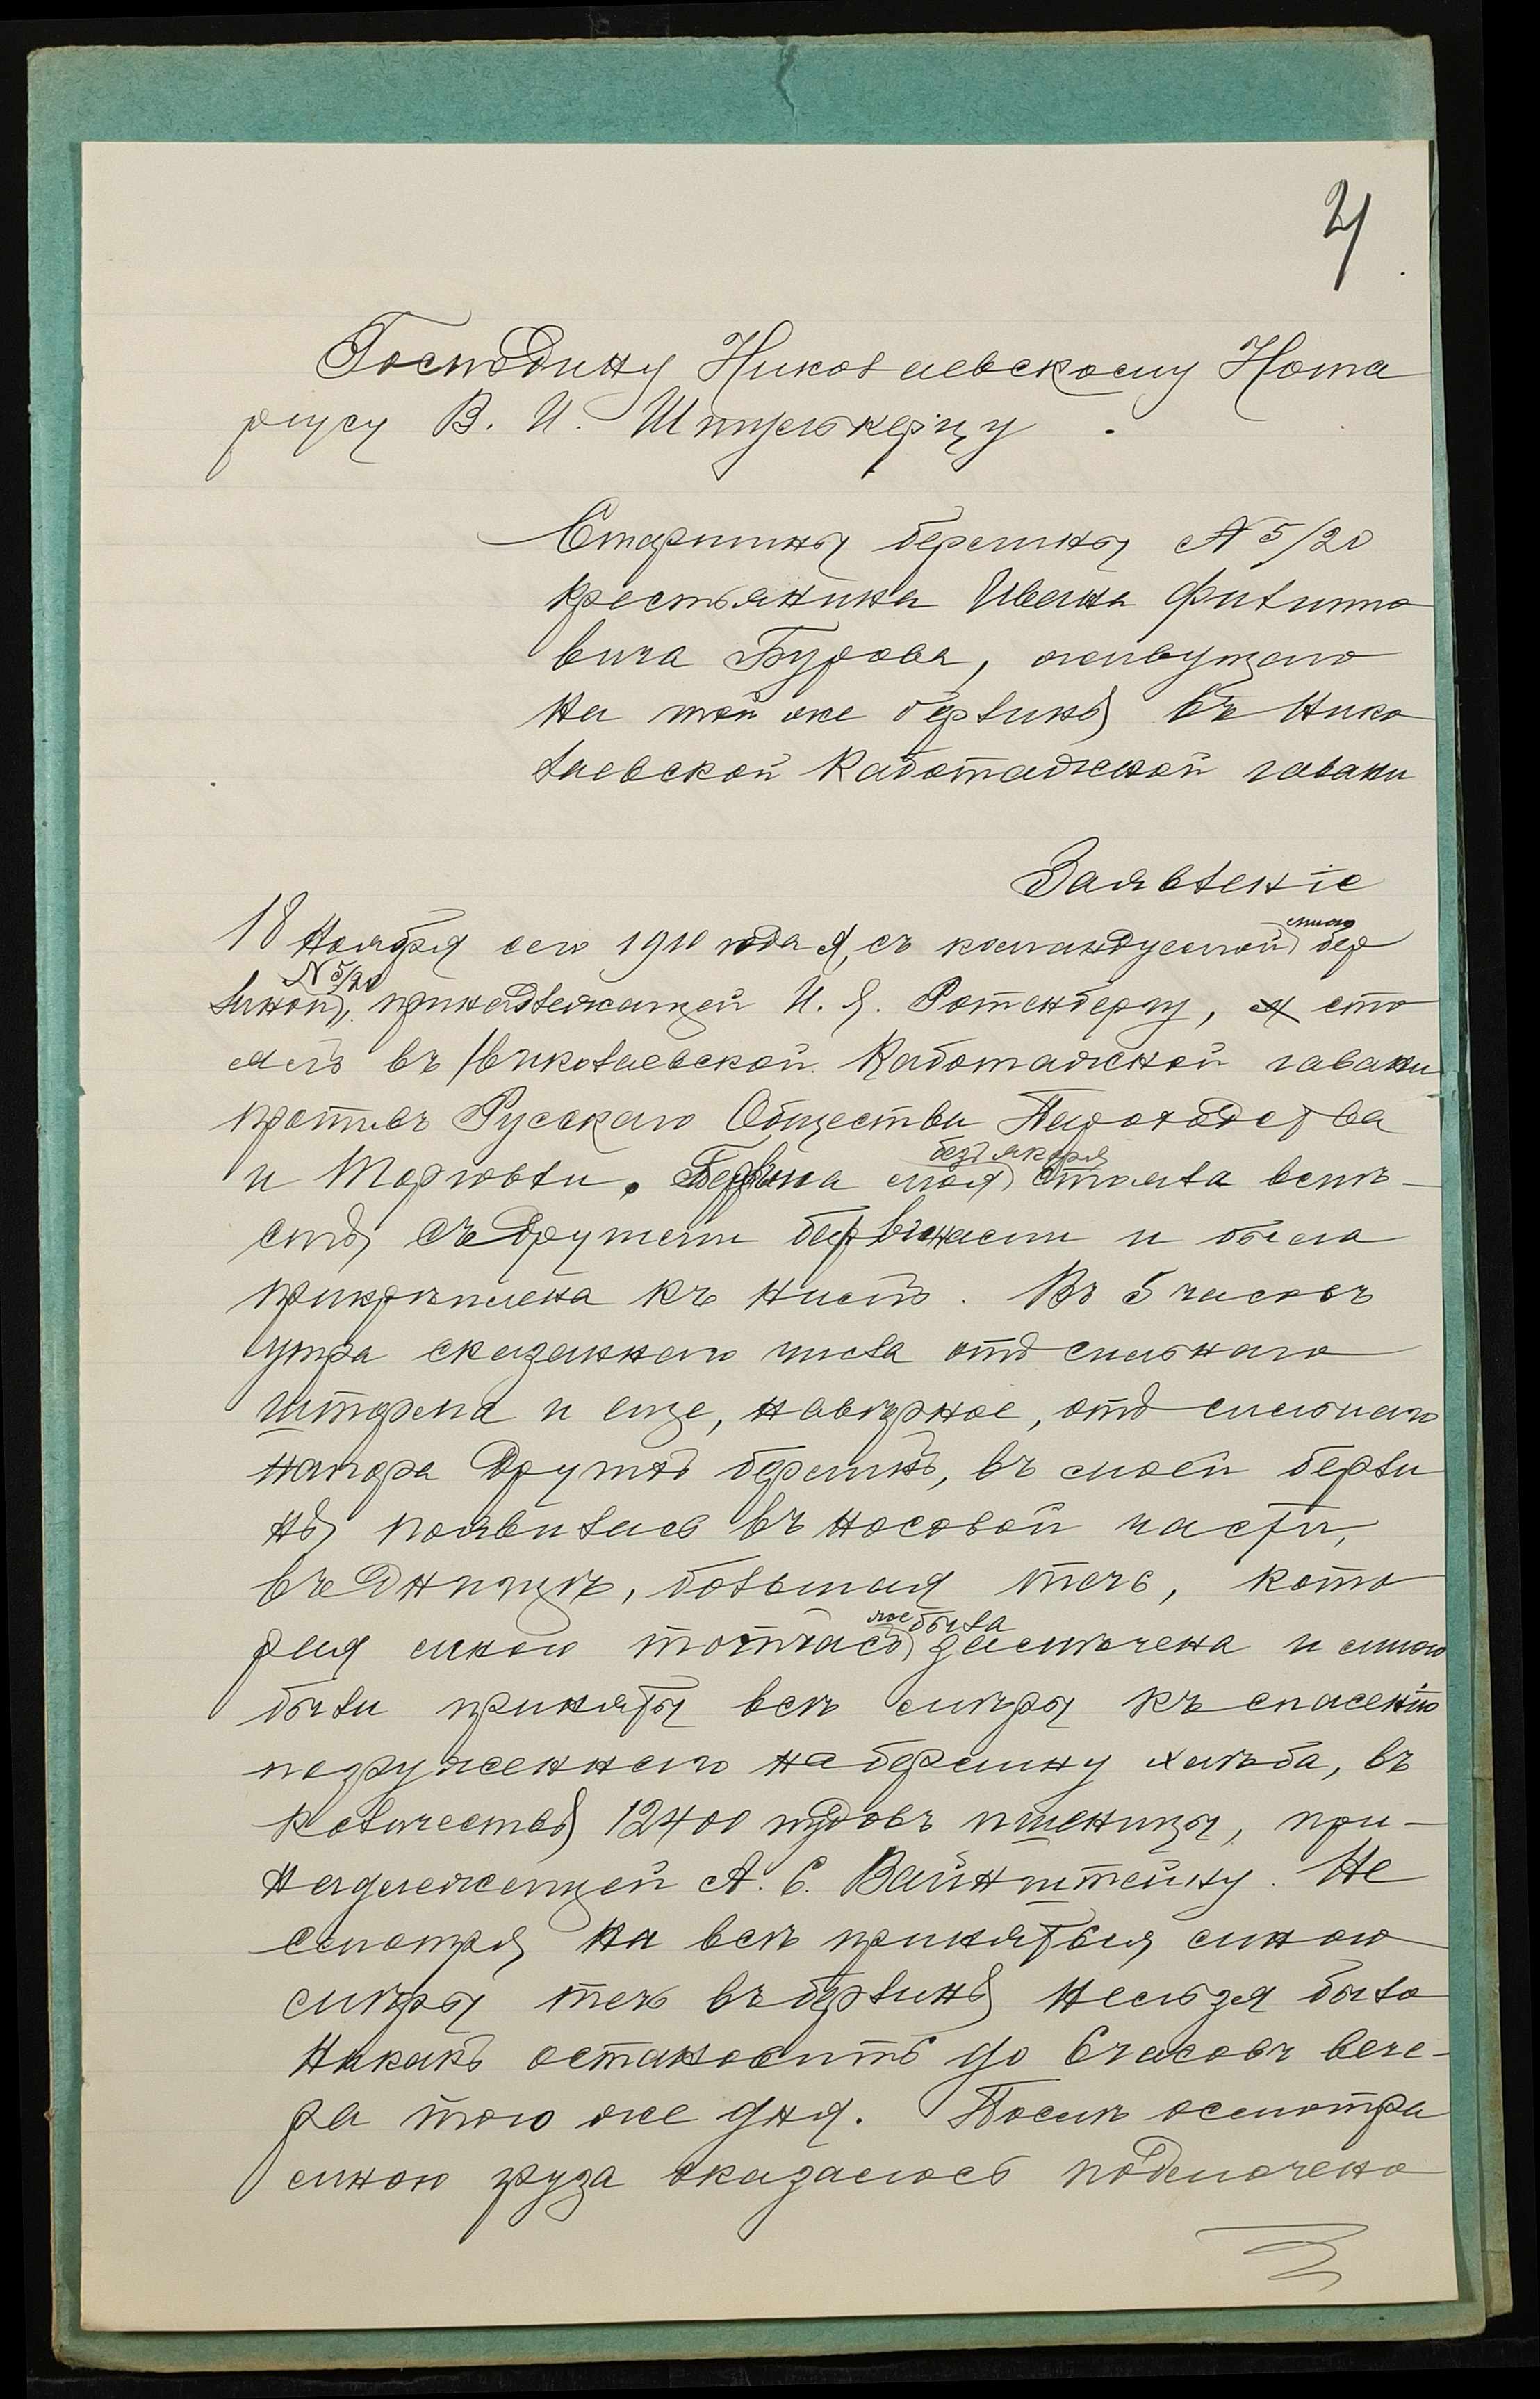 21
Господину Николаевскому Нота
ріусу В. И. Штулькерцу.
Старшины берлины № 5/20
крестьянина Ивана Филиппо
вича Бурова, живущаго
на той же берлинѣ въ Нико
лаевской Каботажной гавани
Заявленіе
мною
18 Ноября сего 1910 года я, съ командуемой бер
№ 5/20
линой, принадлежащей И. Я. Ротенбергу, сто
ялъ въ Николаевской Каботажной гавани
противъ Русскаго Общества Пароходства
безъ якоря
и Торговли. Берлина моя стояла вмѣ-
стѣ съ другими берлинами и была
прикрѣплена къ нимъ. Въ 5 часовъ
утра сказаннаго числа отъ сильнаго
шторма и еще, навѣрное, отъ сильнаго
напора другихъ берлинъ, въ моей берли
нѣ появилась въ носовой части,
въ днищѣ, большая течь, кото
же была
рая мною тотчасъ замѣчена и мною
были приняты всѣ мѣры къ спасенію
погруженнаго на берлину хлѣба, въ
количествѣ 12400 пудовъ пшеницы, при-
надлежащей А. С. Вайнштейну. Не
смотря на всѣ принятыя мною
мѣры течь въ берлинѣ нельзя было
никакъ остановить до 6 часовъ вече-
ра того же дня. Послѣ осмотра
мною груза оказалось подмочено